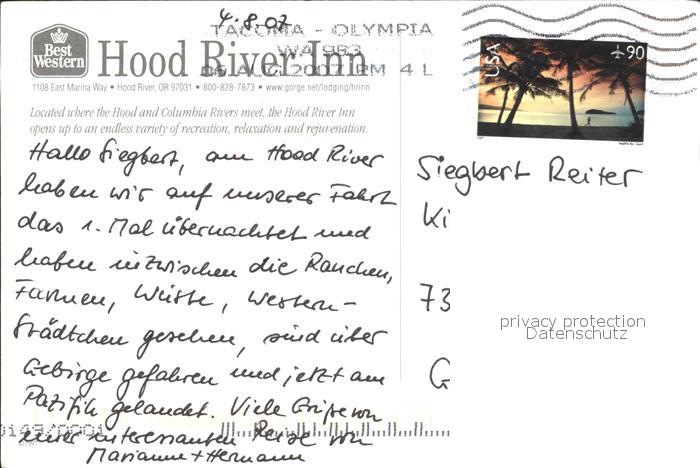 4.8.07
TACOMA - OLYMPIA
WA 983
06 AUG 2007 PM 4 L
Best Western
Hood River Inn
USA
90
1108 East Marina Way • Hood River, OR 97031 • 800-828-7873 • www.gorge.net/lodging/hrinn
Located where the Hood and Columbia Rivers meet, the Hood River Inn
opens up to an endless variety of recreation, relaxation and rejuvenation.
Hallo Siegbert, am Hood River
haben wir auf unserer Fahrt
das 1. Mal übernachtet und
haben inzwischen die Ranchen,
Farmen, Wüste, Western-
Städtchen gesehen, sind über
Gebirge gefahren und jetzt am
Pazifik gelandet. Viele Grüße von
einer interessanten Reise von
Marianne + Hermann
Siegbert Reiter
Ki
73
G
privacy protection
Datenschutz